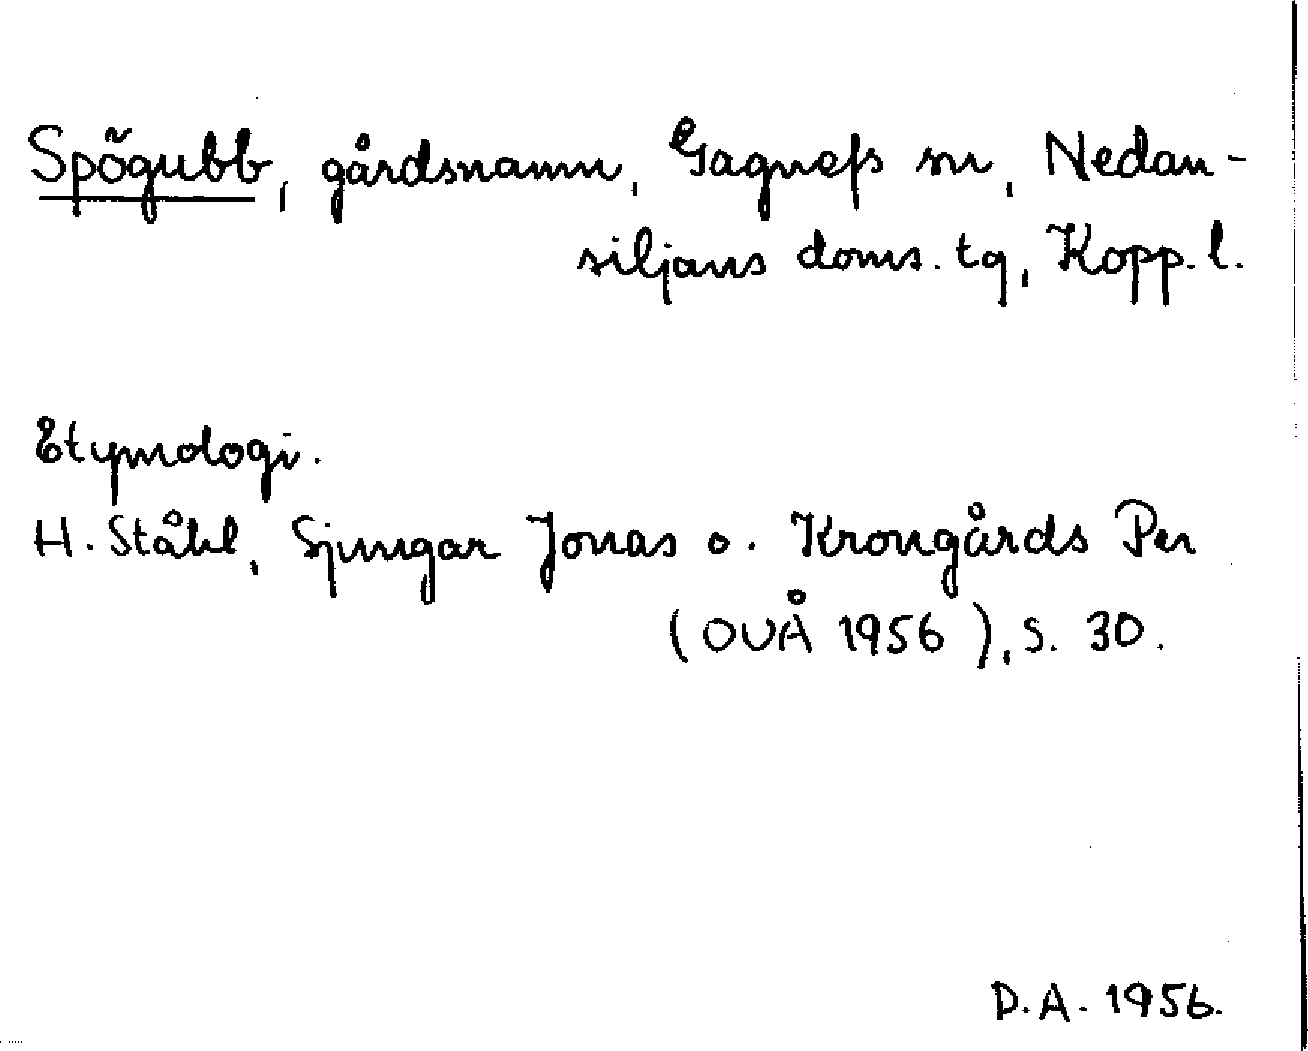 Spögubb, gårdsnamn, Gagnefs sn, Nedan-
siljans doms. tg, Kopp. l.
Etymologi.
H. Ståhl, Sjungar Jonas o. Krongårds Per
(OUÅ 1956), s. 30.
D.A. 1956.